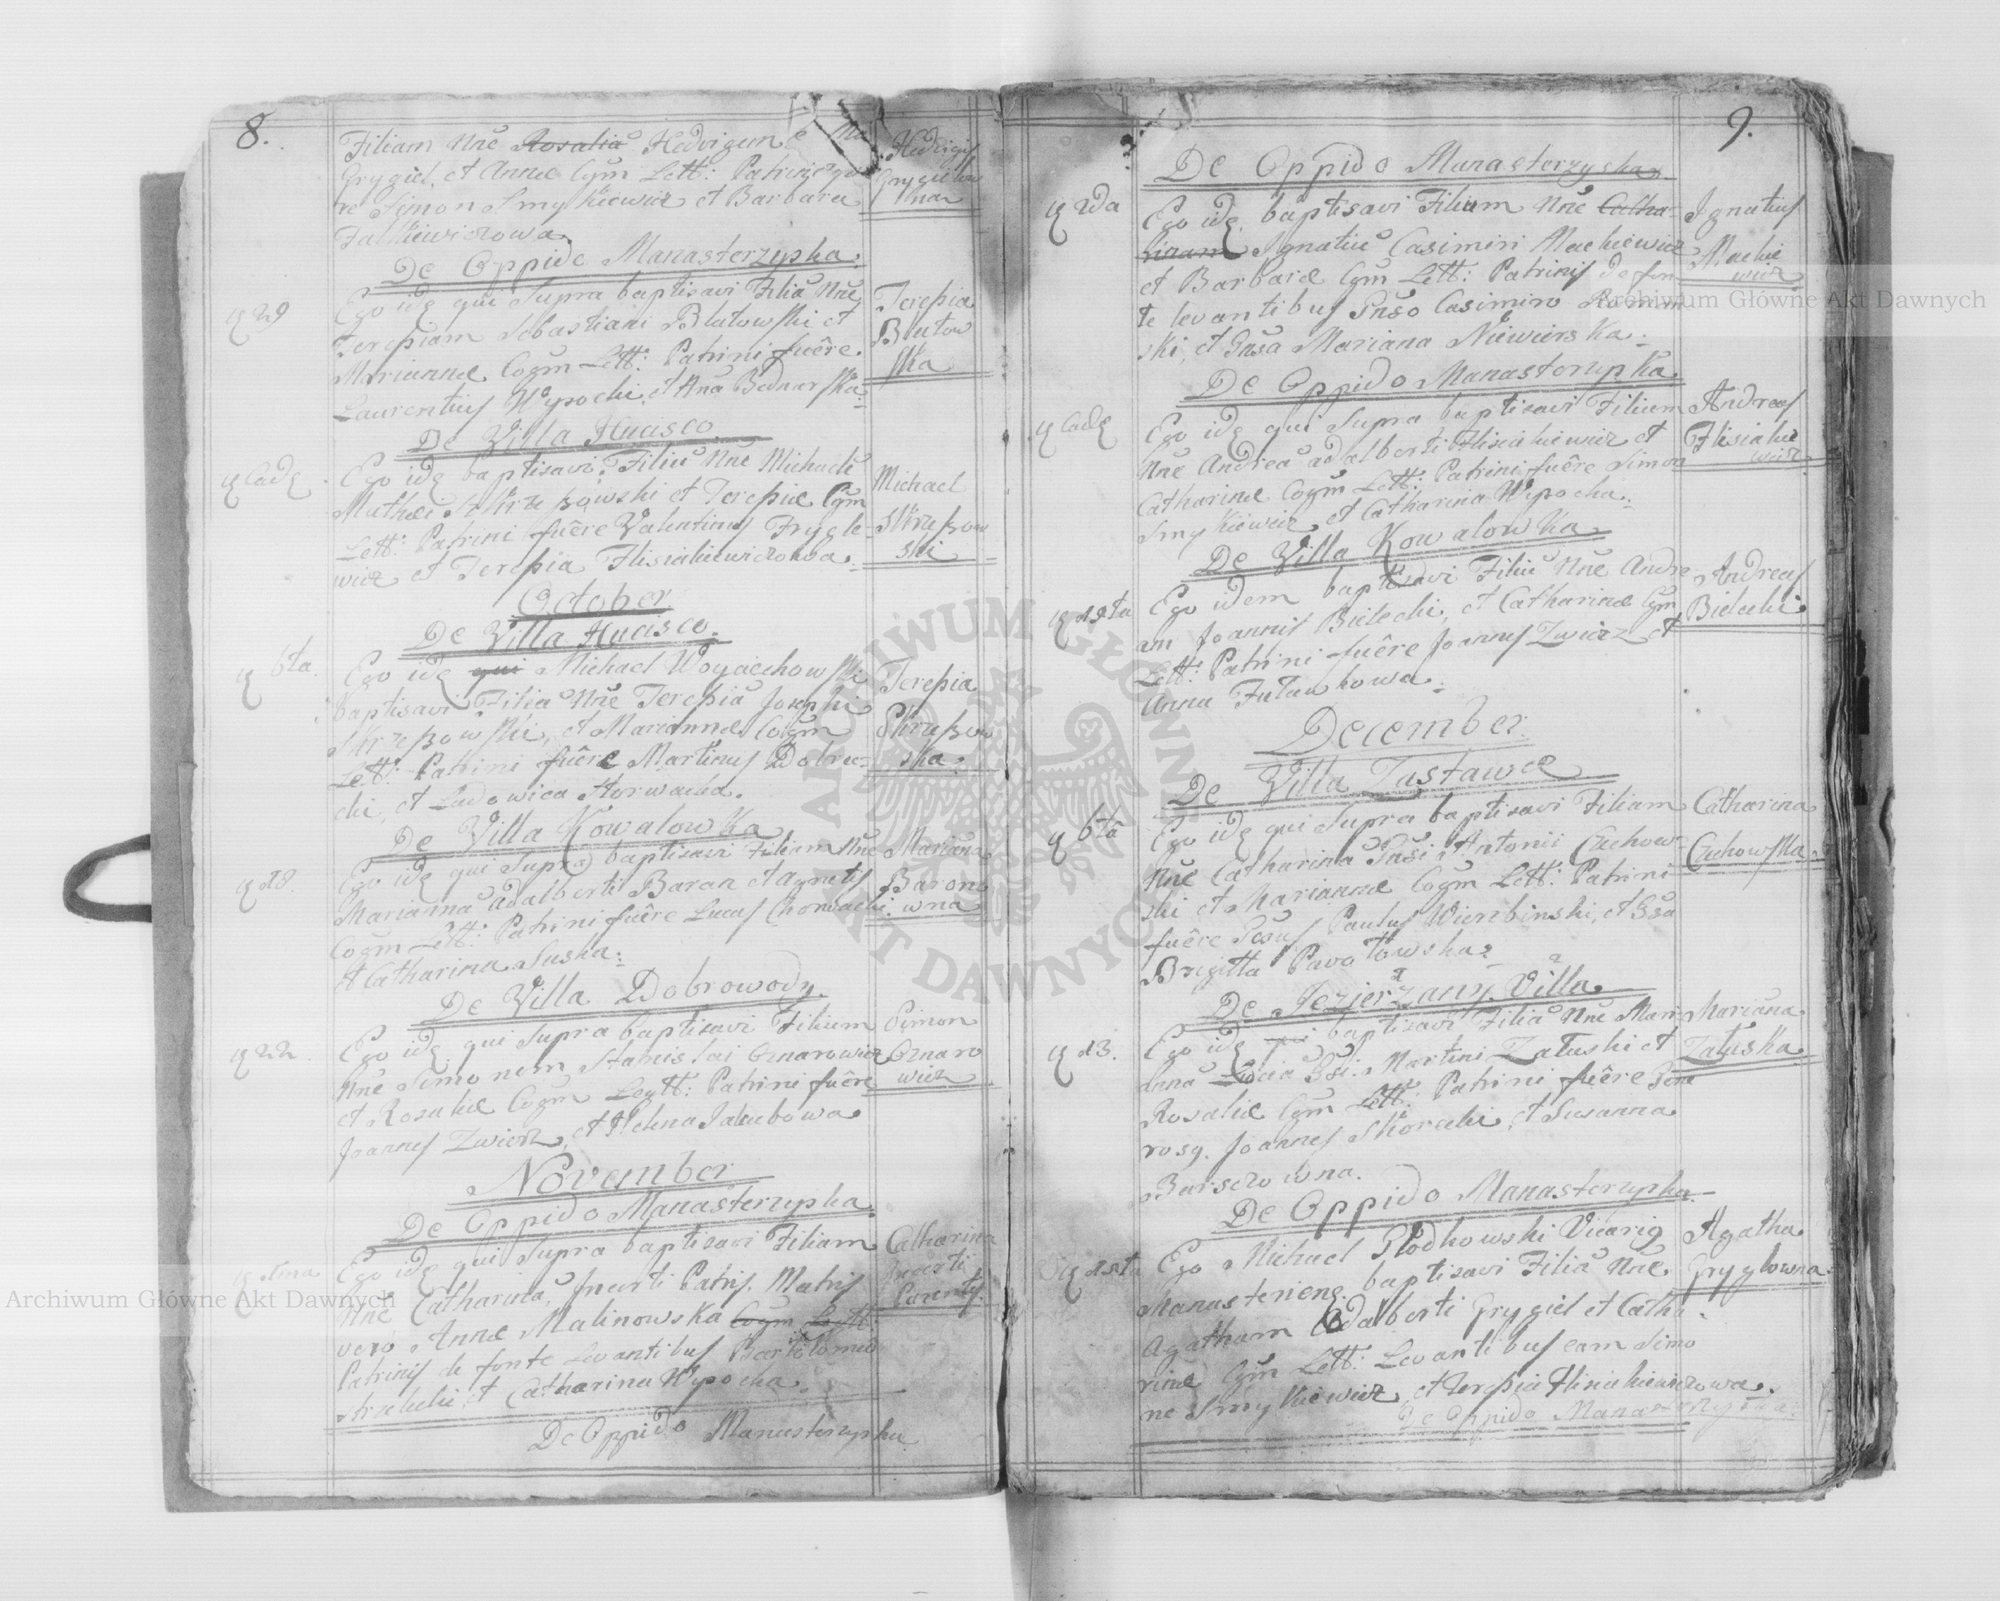 8.
Filiam Nne Rosalia Hedvigem
Grygiel, et Annæ Cgm Lett: Patrini
re Simon Smykiewicz et Barbara
Falkiewiczowa.
Hedvigis
De Oppido Manasterzyska.
29
Ego idę qui Supra baptisavi Filiã Nne
Terepiam Sebastiani Blatowski et
Mariannæ Cogm Lett: Patrini fuêre
Laurentius Wysocki, et Aña Bednarska.
Terepia
Blutow
ska
De Villa Hucisco
eadę
Ego idę baptisavi Filiũ Nne Michaelẽ
Mathei Skrzepowski et Terepiæ Cgm
Lett: Patrini fuêre Valentinus Frycle-
wicz et Terepia Flisiakiewiczowa.
Michael
Skrzepow
ski
October
De Villa Hucisco.
6ta.
Ego idę qui Michael Woyciechowski
baptisavi Filiã Nne Terepiã Josephi
Skrzepowski, et Mariannæ Cogm
Lett: Patrini fuêre Martinus Dobru-
cki, et Ludowica Horwacka.
Terepia
Skrzepow
ska.
De Villa Kowalowka
18.
Ego idę qui Supra baptisavi Filiam Nne
Mariannã Adalberti Baran et Agnetis
Cogm Lett: Patrini fuêre Lucas Chorwacki
et Catharina Suska.
Mariana
Barono
wna
De Villa Dobrowody.
22.
Ego idę qui Supra baptisavi Filium
Nne Simonem Stanislai Oznarowicz
et Rosaliæ Cogm Legtt: Patrini fuêre
Joannes Zwierz, et Helena Jakubowa
Simon
Oznaro
wicz
November
De Oppido Manasterzyska.
Ego idę qui Supra baptisavi Filiam
Nne Catharinã, Incerti Patris, Matris
vero Annæ Malinowska Cogm Lett:
Patrinis de fonte Levantibus Bartolomeo
et Catharina Wysocka.
Catharina
Incerti
Parentis.
De Oppido Manasterzyska
9.
De Oppido Manasterzyska.
2da
Ego idę baptisavi Filium Nne Catha-
rinam Ignatiũ Casimiri Mackiewicz
et Barbaræ Cgm Lett: Patrinis de fon-
te levantibus Gñso Casimiro
ski, et Gñsa Mariana Niewierska.
Ignatius
Mackie
wicz
De Oppido Manasterzyska
eadę
Ego idę qui Supra baptisavi Filium
Nne Andreã Adalberti Flisiakiewicz et
Catharinæ Cogm Lett: Patrini fuêre Simon
Smykiewicz et Catharina Wysocka.
Andreas
Flisiakie
wicz
De Villa Kowalowka
Ego idem baptisavi Filiũ Nne Andre-
am Joannis Bielecki, et Catharinæ Cgm
Lett: Patrini fuêre Joannes Zwierz et
Anna Futawkowa.
Andreas
Bielecki
December
De Villa Zastawce
6ta
Ego idę qui Supra baptisavi Filiam
Nne Catharina Gñsi Antonii Czechow-
ski et Mariannæ Cogm Lett: Patrini
fuêre Gñsus Paulus Wierzbinski, et Gñsa
Brigitta Pavołowska
Catharina
Czechowska
De Jezierzany Villa
13.
Ego idę qui baptisavi Filiã Nne Mari-
annã Lucia Gsi: Martini Załuski et
Rosaliæ Cgm Lett: Patrini fuêre Gene
rosq. Joannes Skorecki, et Susanna
Barsczowna.
Mariana
Załuska
De Oppido Manasterzyska.
Ego Michael Płodkowski Vicariq
Manasterienq. baptisavi Filiã Nne
Agatham Adalberti Grygiel et Catha-
rinæ Cgm Lett: Levantibus eam Simo
ne Smykiewicz, et Terepia Flisiakiewiczowa.
Agatha
Gryglowna
De Oppido Manasterzyska
Archiwum Główne Akt Dawnych
Archiwum Główne Akt Dawnych
ARCHIWUM GŁÓWNE AKT DAWNYCH